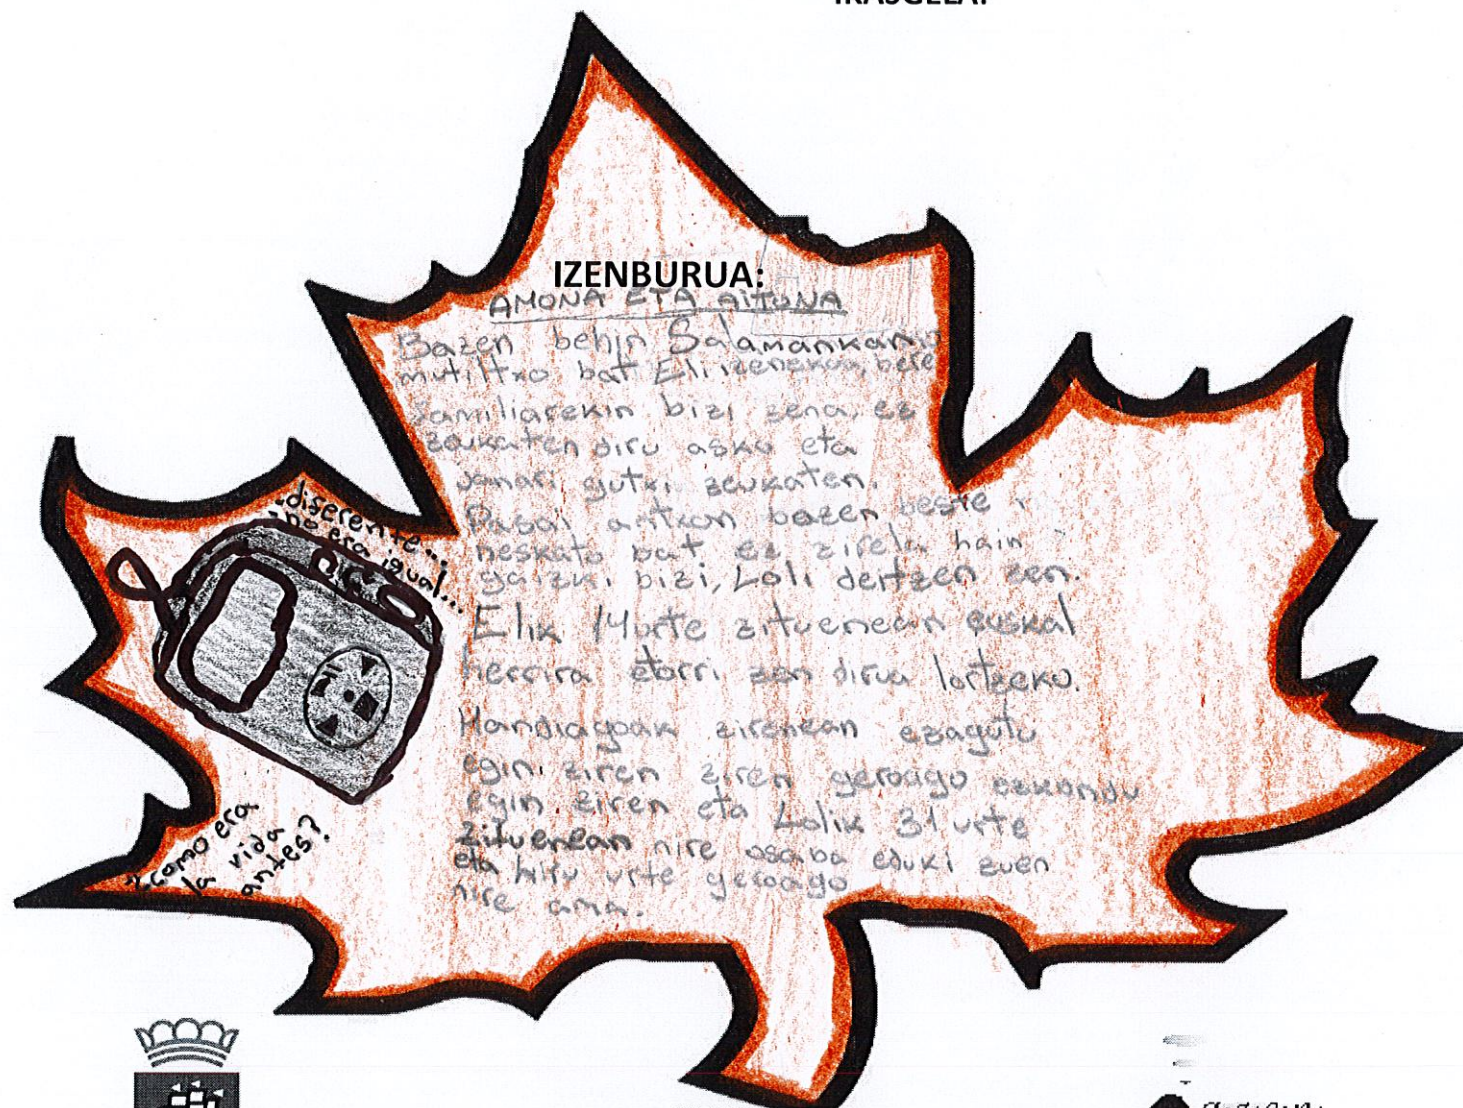 IRASGELA:
IZENBURUA:
AMONA ETA AITUNA
Bazen behin Salamankan
mutiltxo bat Eli izenekoa, bere
familiarekin bizi zena, ez
zeukaten diru asko eta
janari gutxi zeukaten.
Pasai antxon bazen beste
neskato bat ez zirela hain
gaizki bizi, Loli deitzen zen.
Elik 14 urte zituenean euskal
herrira etorri zen dirua lortzeko.
Handiagoak zirenean ezagutu
egin ziren ziren geroago ezkondu
egin ziren eta Lolik 31 urte
zituenean nire osaba eduki zuen
eta hiru urte geroago
nire ama.
diferente...
no era igual...
¿como era
la vida
antes?